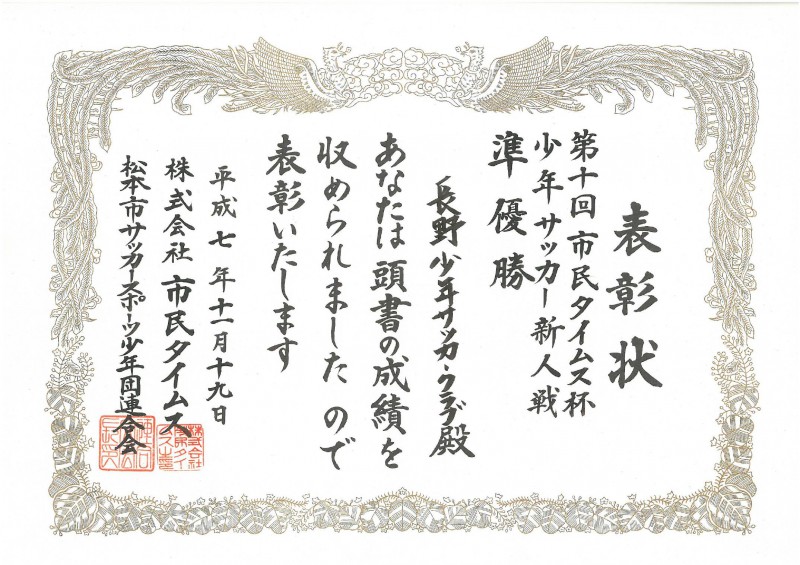 表彰状
第十回市民タイムス杯
少年サッカー新人戦
準優勝
長野少年サッカークラブ殿
あなたは頭書の成績を
収められましたので
表彰いたします
平成七年十一月十九日
株式会社市民タイムス
松本市サッカースポーツ少年団連合会